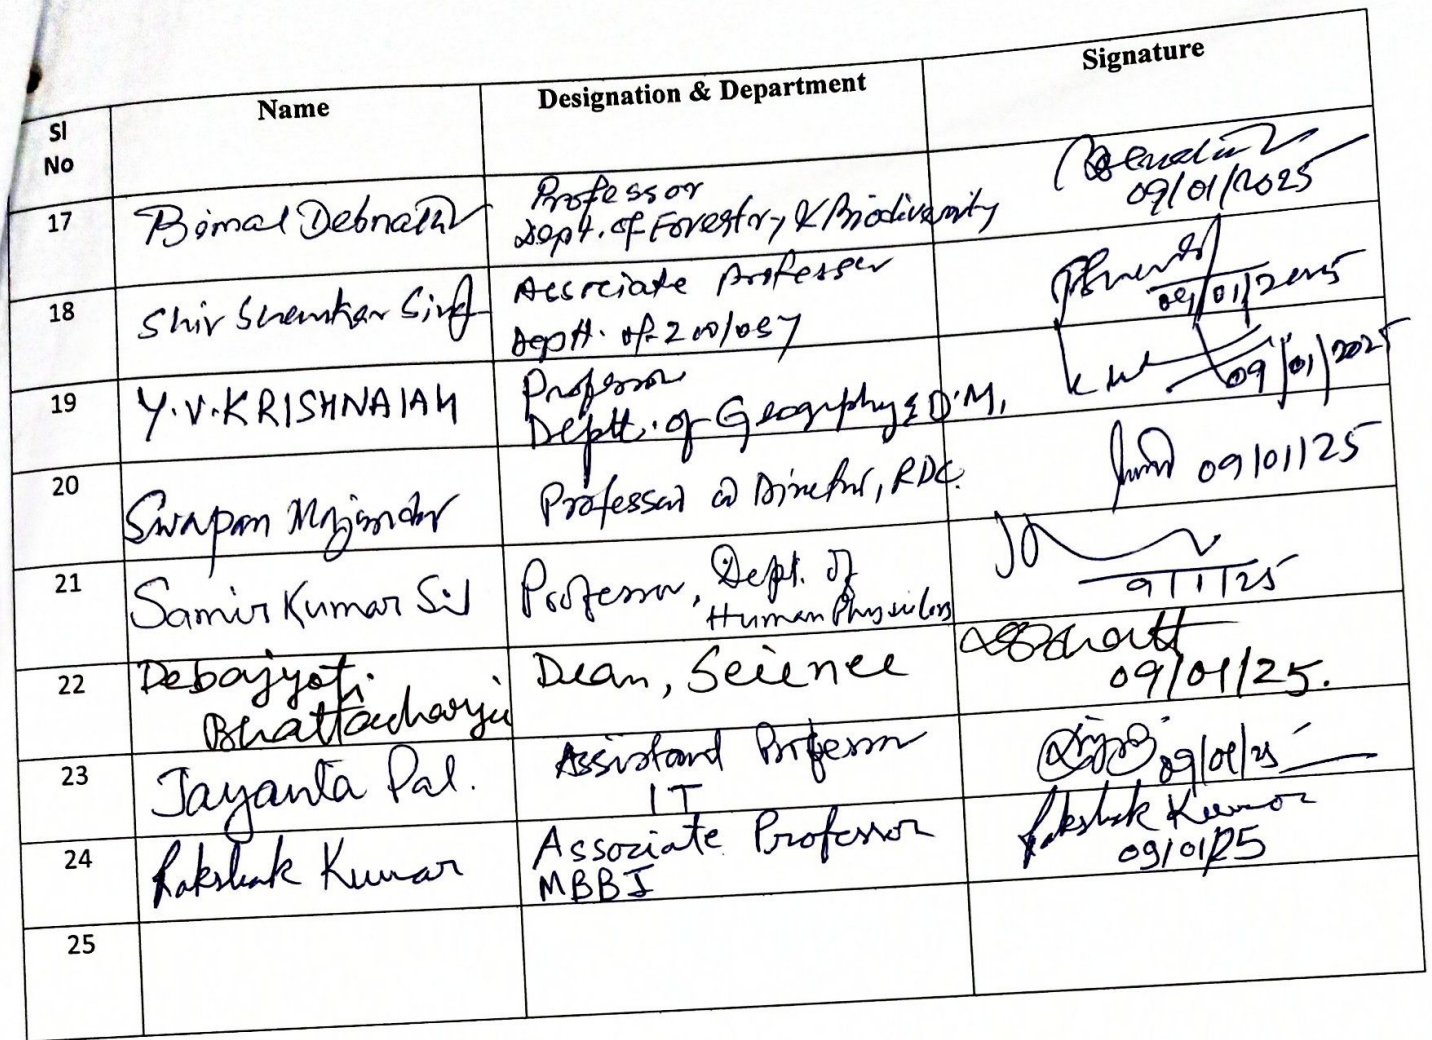 Sl No Name Designation & Department Signature
17 Bimal Debnath Professor
Dept. of Forestry & Biodiversity
09/01/2025
18 Shiv Shankar Singh Associate Professor
Deptt. of Zoology
09/01/2025
19 Y.V. KRISHNAIAH Professor
Deptt. of Geography & D.M.
09/01/2025
20 Swapan Majumder Professor @ Director, RDC. 09/01/25
21 Samir Kumar Sil Professor, Dept. of
Human Physiology
9/1/25
22 Debajyoti Dean, Science
Bhattacharjee
09/01/25.
23 Jayanta Pal. Assistant Professor
IT
09/01/25
24 Rakshak Kumar Associate Professor Rakshak Kumar
MBBI 09/01/25
25